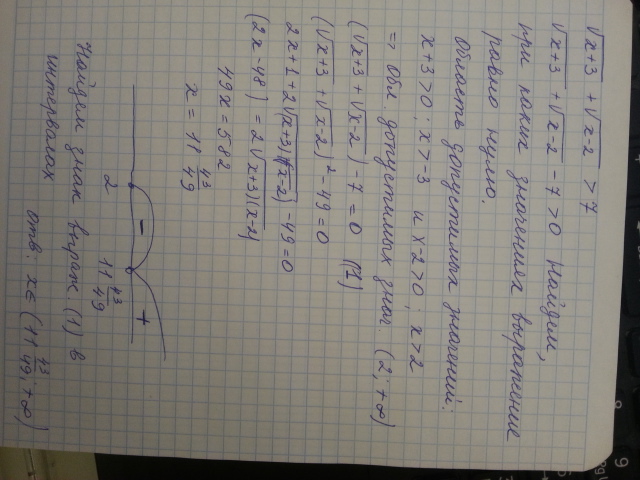 √x+3 + √x-2 > 7
√x+3 + √x-2 - 7 > 0 Найдем,
при каких значениях выражение
равно нулю.
Область допустимых значений:
x+3>0; x>-3 и x-2>0; x>2
=> обл допустимых знач. (2; +∞)
(√x+3 + √x-2) - 7 = 0 (1)
(√x+3 + √x-2)² - 49 = 0
2x+1+2√(x+3)(x-2) - 49 = 0
(2x-48) = 2√(x+3)(x-2)
49x = 582
x = 11 43/49
- +
2 11 43/49
Найдем знак выраж. (1) в
интервалах отв: x∈(11 43/49; +∞)
9